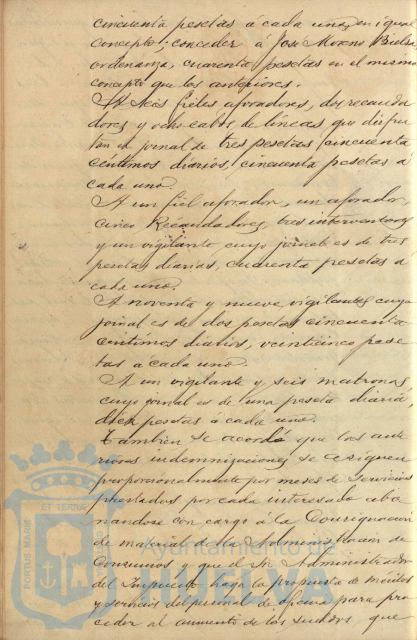 cincuenta pesetas á cada uno, en igual
concepto; conceder á José Moreno Bielsa
ordenanza, cuarenta pesetas en el mismo
concepto que los anteriores.
A seis fieles aforadores, dos recauda
dores y ocho cabos de líneas que disfru
tan el jornal de tres pesetas cincuenta
centimos diarios, cincuenta pesetas á
cada uno.
A un fiel aforador, un aforador,
cinco Recaudadores, tres interventores
y un vigilante, cuyo jornal es de tres
pesetas diarias, cuarenta pesetas á
cada uno.
A noventa y nueve vigilantes cuyo
jornal es de dos pesetas cincuenta
centimos diarios, veinticinco pese
tas á cada uno.
A un vigilante y seis matronas
cuyo jornal es de una peseta diaria,
diez pesetas á cada uno.
Tambien se acordó que las ante
riores indemnizaciones se asignen
proporcionalmente por meses de servicios
prestados por cada interesado abo
nandose con cargo á la Consignacion
de material de la Administracion de
Consumos y que el Sr. Administrador
del Impuesto haga la propuesta de méritos
y servicios del personal de oficina para pro
ceder al aumento de los sueldos que
PORTUS MARIS ET TERRAE
Ayuntamiento de
HUELVA